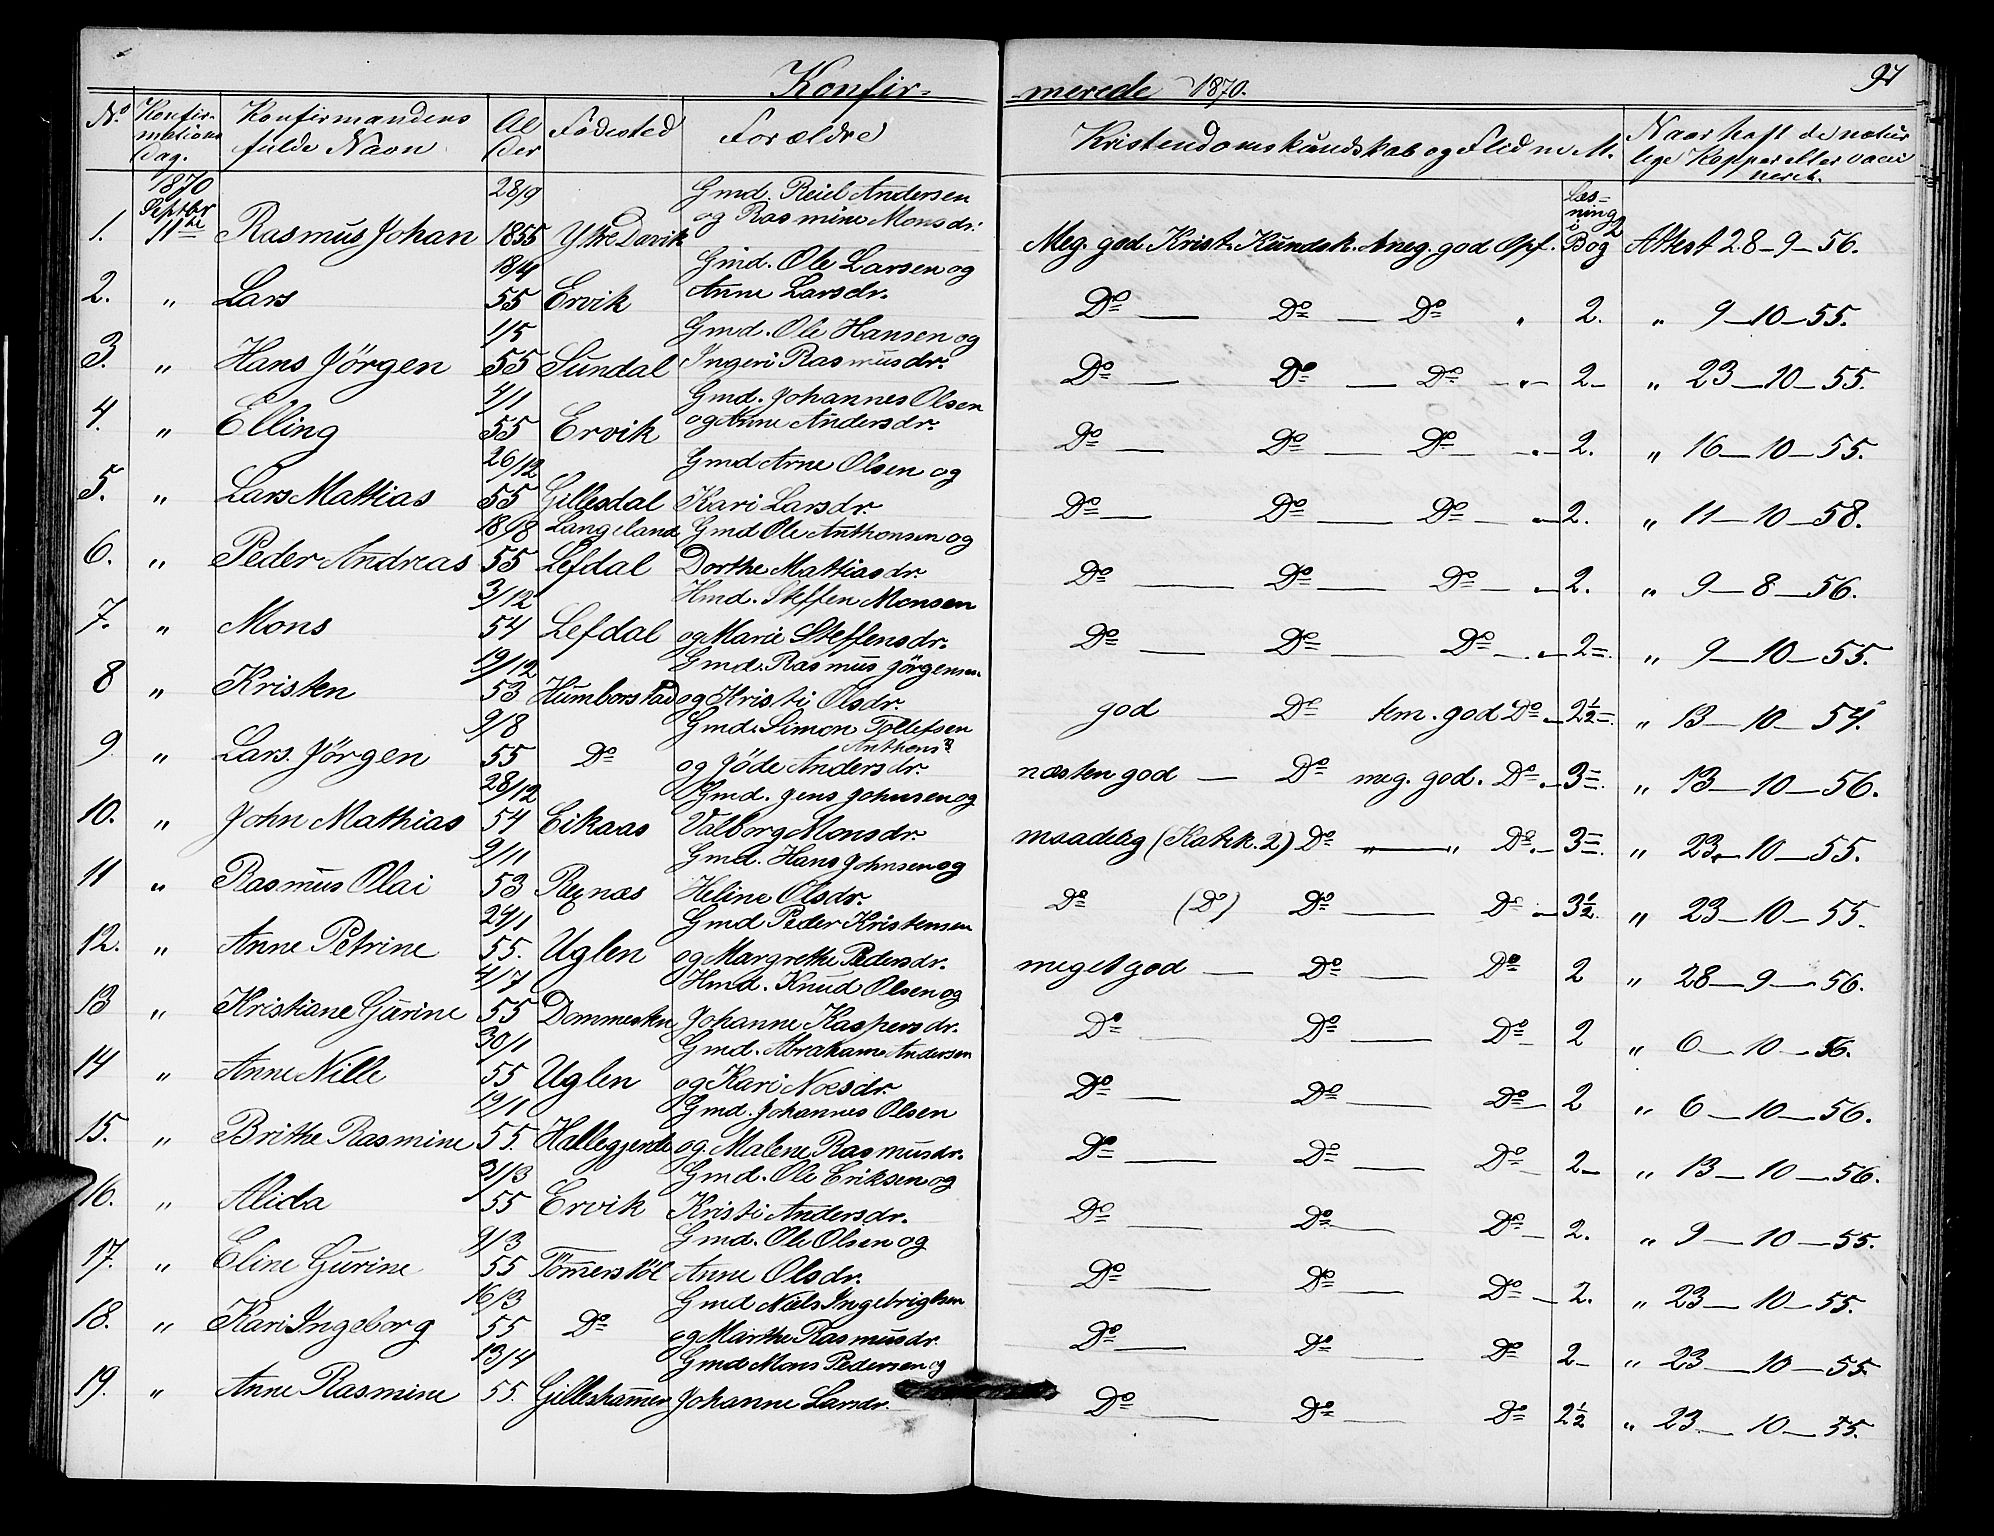 Konfir- merede 1870. 94
No Konfir-mations Dag. Konfirmandens fulde Navn Al der Fødested Forældre Kristendomskundskab og Flid m. M. Naar haft de natur lige Kopper eller vacci neret.
1870 Septbr 28/9 Gmd. Reiel Andersen Læs-ning i
1. 11te Rasmus Johan 1855 Ytre Davik og Rasmine Monsdr. Meg. god Krist. Kundsk. & meg. god Opf. Bog 2 Attest 28-9-56.
18/4 Gmd. Ole Larsen og
2. " Lars 55 Ervik Anne Larsdr. Do — Do — Do " 2. " 9-10-55.
1/5 Gmd. Ole Hansen og
3. " Hans Jörgen 55 Sundal Ingeri Rasmusdr. Do — Do — Do - " - 2- " 23-10-55.
4/1 Gmd. Johannes Olsen
4. " Elling 55 Ervik og Anne Andersdr. Do — Do — Do - " - 2. " 16-10-55.
26/12 Gmd Arne Olsen og
5. " Lars Mattias 55 Gillesdal Kari Larsdr. Do — Do — Do - " - 2. " 11-10-58.
18/8 Langeland Gmd Ole Anthonsen og
6. " Peder Andreas 55 Lefdal Dorthe Mattiasdr. Do — Do — Do - " - 2. " 9-8-56.
3/12 Hmd. Steffen Monsen
7. " Mons 54 Lefdal og Marie Steffensdr. Do — Do — Do - " - 2=. " 9-10-55.
19/12 Gmd. Rasmus Jörgensen
8 " Kristen 53 Humborstad og Kristi Olsdr. god Do tem. god Do - 2½=. " 13-10-54.
9/8 Gmd. Simon Tollefsen
9. " Lars Jörgen 55 Do og Jöde Andersdr. Anthons næsten god — Do meg. god. Do - 3=. " 13-10-56.
28/12 Gmd. Jens Johnsen og
10. " John Mathias 54 Eikaas Valborg Monsdr. maadelig (Katek. 2) Do " — " Do - 3=. " 23-10-55.
9/11 Gmd. Hans Johnsen og
11 " Rasmus Olai 53 Reknæs Heline Olsdr. Do (Do) Do — Do - 3½. " 23-10-55.
24/1 Gmd Peder Kristensen
12. " Anne Petrine 55. Uglen og Margrethe Pedersdr. meget god — Do — Do 2 " 28-9-56.
4/7 Hmd. Knud Olsen og
13 " Kristiane Gurine 55 Dommesten Johanne Kaspersdr. Do — Do — Do - 2 " 6-10-56.
30/1 Gmd. Abraham Andersen
14 " Anne Nille 55 Uglen og Kari Noesdr. Do — Do — Do - 2 " 6-10-56.
19/1 Gmd. Johannes Olsen
15. " Brithe Rasmine 55. Hallegjerde og Malene Rasmusdr. Do — Do — Do - 2- " 13-10-56.
3/3 Gmd. Ole Eriksen og
16. " Alida 55 Ervik Kristi Andersdr. Do — Do — Do - 2. " 9-10-55.
9/3 Gmd. Ole Olsen og
17. " Eline Gurine 55 Tömerstöl Anne Olsdr. Do — Do — Do - 2. " 23-10-55.
16/3 Gmd Niels Ingebrigtsen
18. " Kari Ingeborg 55 Do og Marthe Rasmusdr. Do — Do — Do 2- " 23-10-55.
13/4 Gmd Mons Pedersen og
19. " Anne Rasmine 55. Gilleshamen Johanne Larsdr. Do — Do — Do 2½ " 23-10-55.